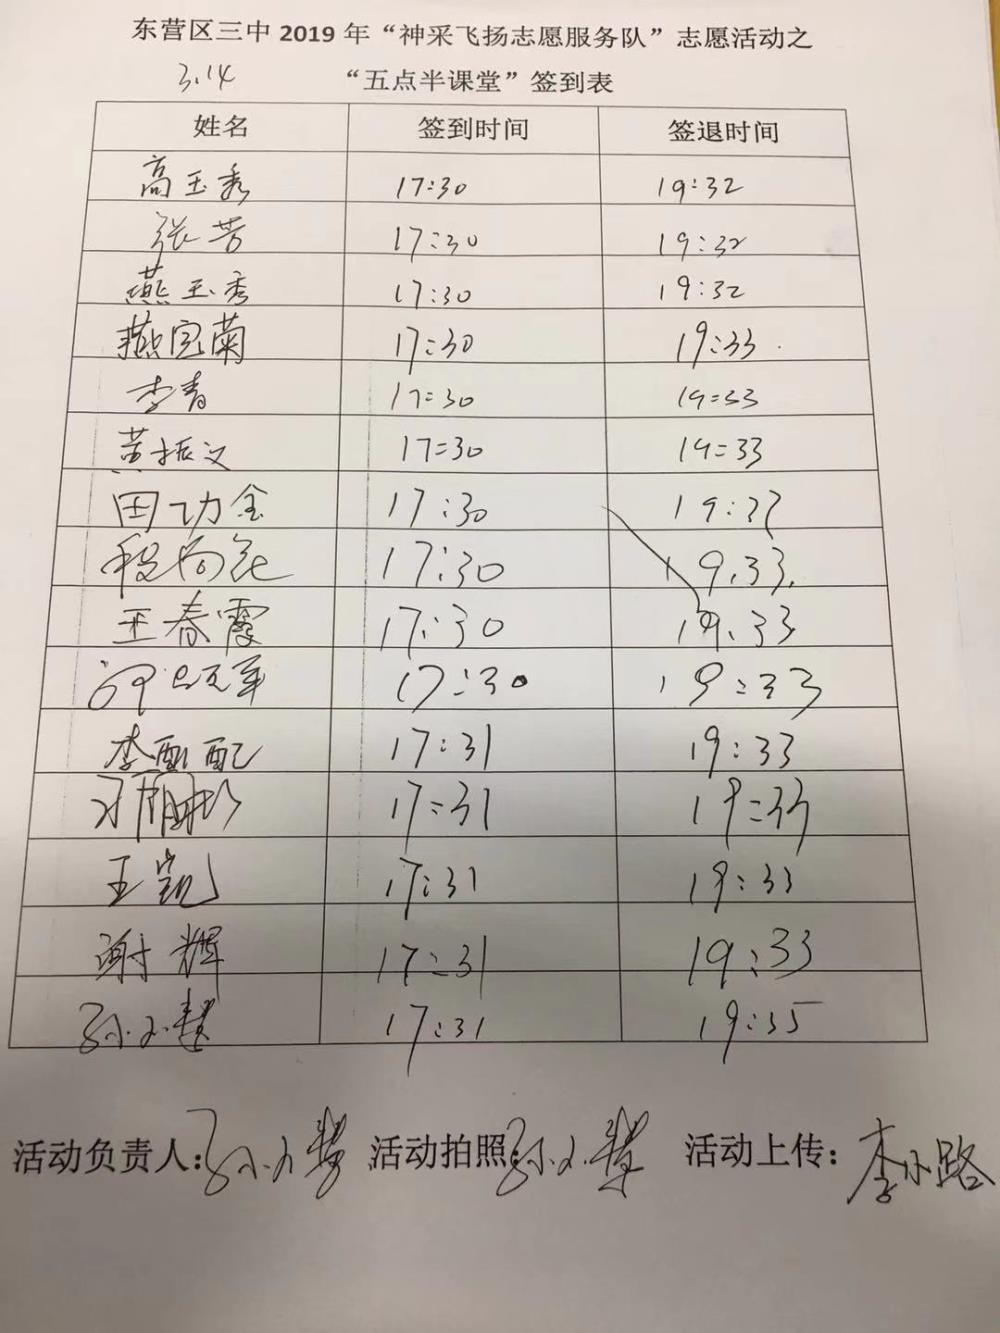 东营区三中 2019 年“神采飞扬志愿服务队”志愿活动之
3.14 “五点半课堂”签到表
姓名 签到时间 签退时间
高玉秀 17:30 19:32
张芳 17:30 19:32
燕玉秀 17:30 19:32
燕宝菊 17:30 19:33
李青 17:30 19:33
黄振义 17:30 19:33
田功金 17:30 19:33
17:30 19.33.
王春霞 17:30 19.33
17:30 19:33
李配配 17:31 19:33
17:31 19:33
王凯 17:31 19:33
谢辉 17:31 19:33
孙小慧 17:31 19:35
活动负责人:孙小慧 活动拍照:孙小慧 活动上传:李小路